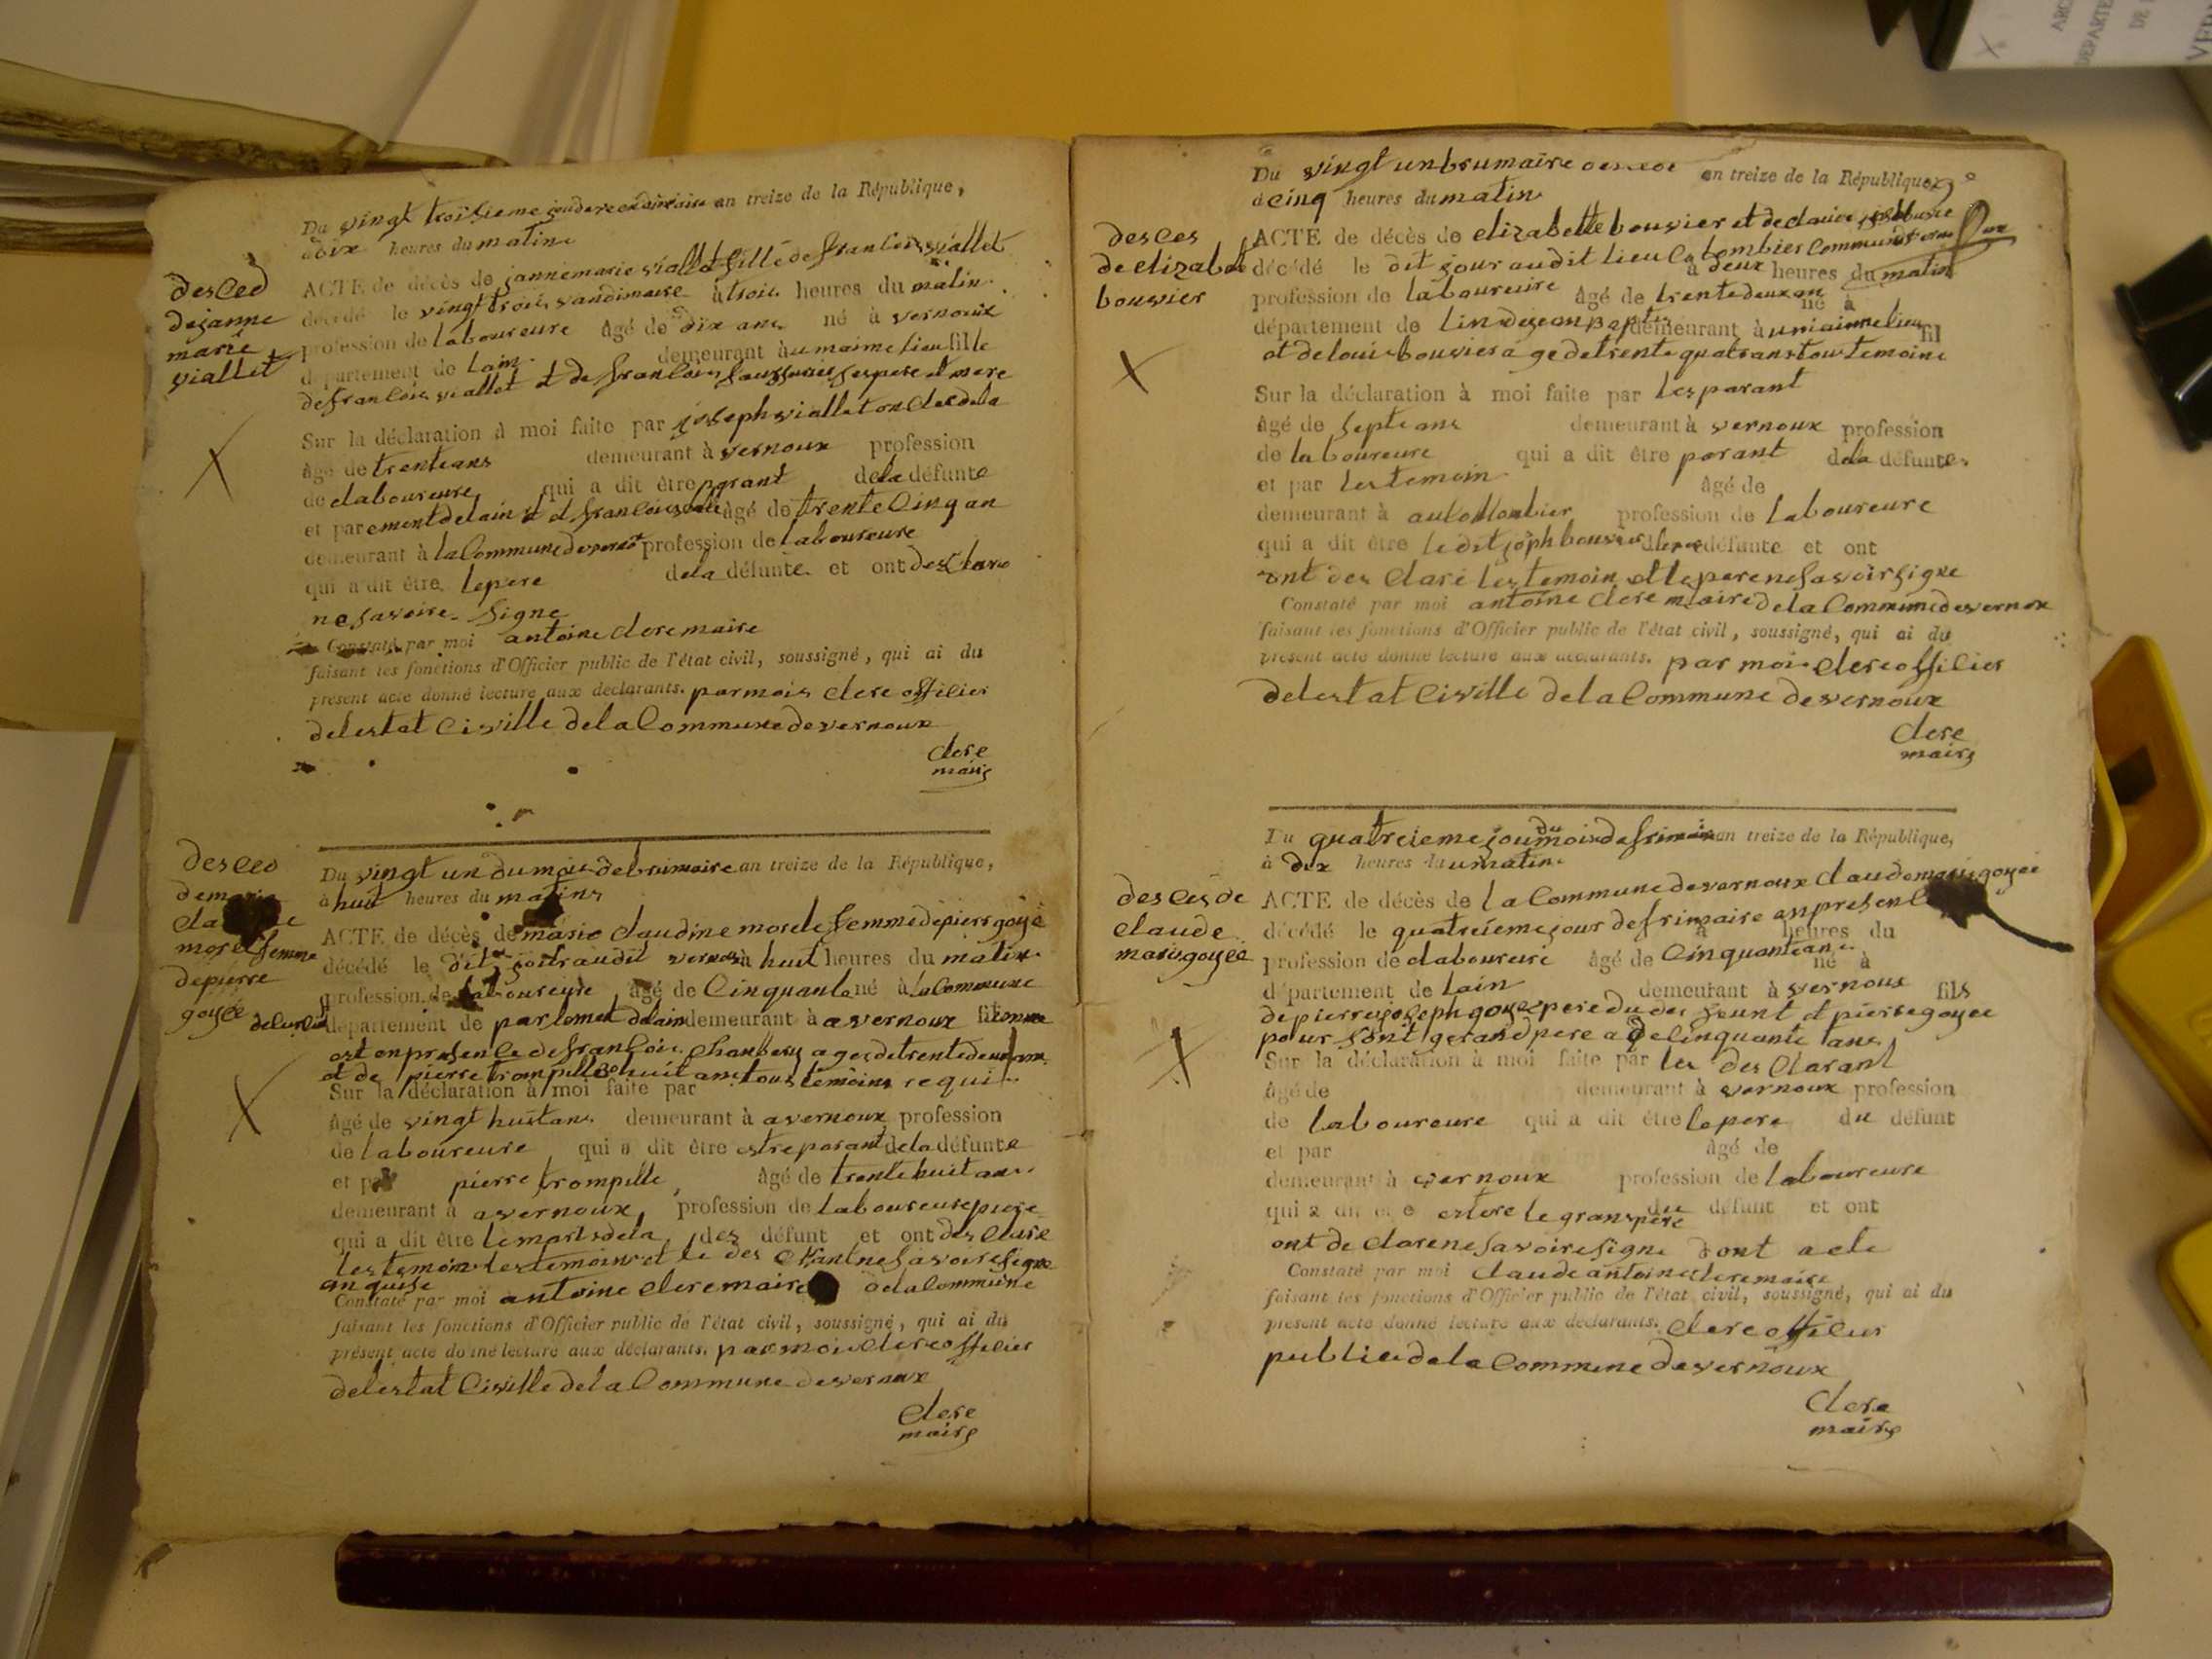 Du vingt troisieme an treize de la République,
à dix heures du matin
desced
dejanne
marie
viallet
ACTE de décès de jannemarie viallet fille de francois viallet
décédé le vingt trois vandimaire à trois heures du matin
profession de laboureure âgé de dix ans né à vernoux
département de lain demeurant à umaime lieu fille
defrancois viallet et de francois ses pere et mere
Sur la déclaration à moi faite par joseph viallet oncle dela
âgé de trenteans demeurant à vernoux profession
de claboureure qui a dit être parant dela défunte
et par âgé de trente cinq an
demeurant à la Commune profession de laboureure
qui a dit être lepere dela défunte et ont desclare
nesavoire signe
Constaté par moi antoine clere maire
faisant les fonctions d'Officier public de l'état civil, soussigné, qui ai du
présent acte donné lecture aux déclarants. parmois clere offilier
delestat Civille dela Commune devernoux
clere
maire
desced
demarie
morel femme
depierre
goyée
Du vingt un dumois debrumaire an treize de la République,
à huit heures du matins
ACTE de décès de marie claudine morele femme depierr goyé
décédé le dit jour audit à huit heures du matin
profession de laboureure âgé de Cinquante né à la Commune
département de demeurant à avernoux
est enpresence defrancois agesdetrentedeux ans
et de pierre trompille huit ans tous temoins requis
Sur la déclaration à moi faite par
âgé de vingt huitans demeurant à avernoux profession
de laboureure qui a dit être estreparant dela défunte
et par pierre trompille, âgé de trente huit ans
demeurant à avernoux, profession de laboureure
qui a dit être lemarisdela des défunt et ont des clare
les temoin les temoin et le des nesavoire signe
anquise
Constaté par moi antoine clere maire dela Commune
faisant les fonctions d'Officier public de l'état civil, soussigné, qui ai du
présent acte donné lecture aux déclarants. parmoi clere offilier
delestat Civille dela Commune devernoux
Clere
maire
Du vingt unbrumaire an treize de la République
à cinq heures du matin
desces
de elizabet
bouvier
ACTE de décès de elizabette bouvier et de
décédé le dit jour audit lieu Colombier Commune à deux heures du matin
profession de laboureure âgé de trentedeux an né à
département de lin demeurant à umaime lieu fil
et de louis bouvier age detrente quatrans tous temoins
Sur la déclaration à moi faite par lesparant
âgé de septe ans demeurant à vernoux profession
de laboureure qui a dit être parant dela défunte
et par lestemoin âgé de
demeurant à profession de laboureure
qui a dit être ledit joseph bouvier défunte et ont
ont des clare les temoin et lepere nesavoir signe
Constaté par moi antoine clere maire dela Commune devernoux
faisant les fonctions d'Officier public de l'état civil, soussigné, qui ai du
présent acte donné lecture aux déclarants. par moi clere offilier
delestat Civille dela Commune devernoux
Clere
maire
Du quatreieme jour du mois defrimaire an treize de la République,
à dix heures du umatin
descesde
claude
marie goyée
ACTE de décès de la Commune devernoux claudemarie goyée
décédé le quatreieme jour defrimaire à heures du
profession de claboureure âgé de Cinquante ans né à
département de lain demeurant à vernoux fils
depierre joseph goyee pere du des et pierre goyee
pour font gerand pere a de cinquante ans
Sur la déclaration à moi faite par les des clarant
âgé de demeurant à vernoux profession
de laboureure qui a dit être lepere du défunt
et par âgé de
demeurant à vernoux profession de laboureure
qui a dit être estere le granspere du défunt et ont
ont declare nesavoire signe dont acte
Constaté par moi claude antoine clere maire
faisant les fonctions d'Officier public de l'état civil, soussigné, qui ai du
présent acte donné lecture aux déclarants. clere offilier
public dela Commune devernoux
Clere
maire